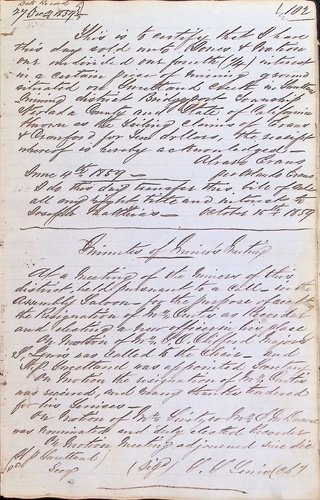 Date Record
27 Dec 1859
1,102
This is to certify that I have
this day sold unto Jones & Watson
our undivided one fourth (1/4) interest
in a certain piece of mining ground
situated on Sweetland Creek in Sweetland
Mining district Bridgeport Township
Nevada County and State of California
known as the Claims
& Crawford for Ten dollars, the receipt
whereof is hereby acknowledged
June 4th 1859
I do this day transfer this bill of Sale
all my right title and interest to
Joseph October 15th 1859
Minutes of Miner's Meeting
At a Meeting of the Miners of this
district, held pursuant to a call in the
Assembly Saloon for the purpose of accepting
the Resignation of Mr Curtis as Recorder
and electing a new officer in his place
On Motion of Mr Major
Lewis was Called to the Chair and
H.P. Sweetland was appointed Secretary
On Motion the resignation of Mr Curtis
was received, and thanks tendered
for his Services
On Motion of Mr Mr
was nominated and duly elected
On Motion Meeting adjourned sine die
H P Sweetland
Secy (Sig) Lewis